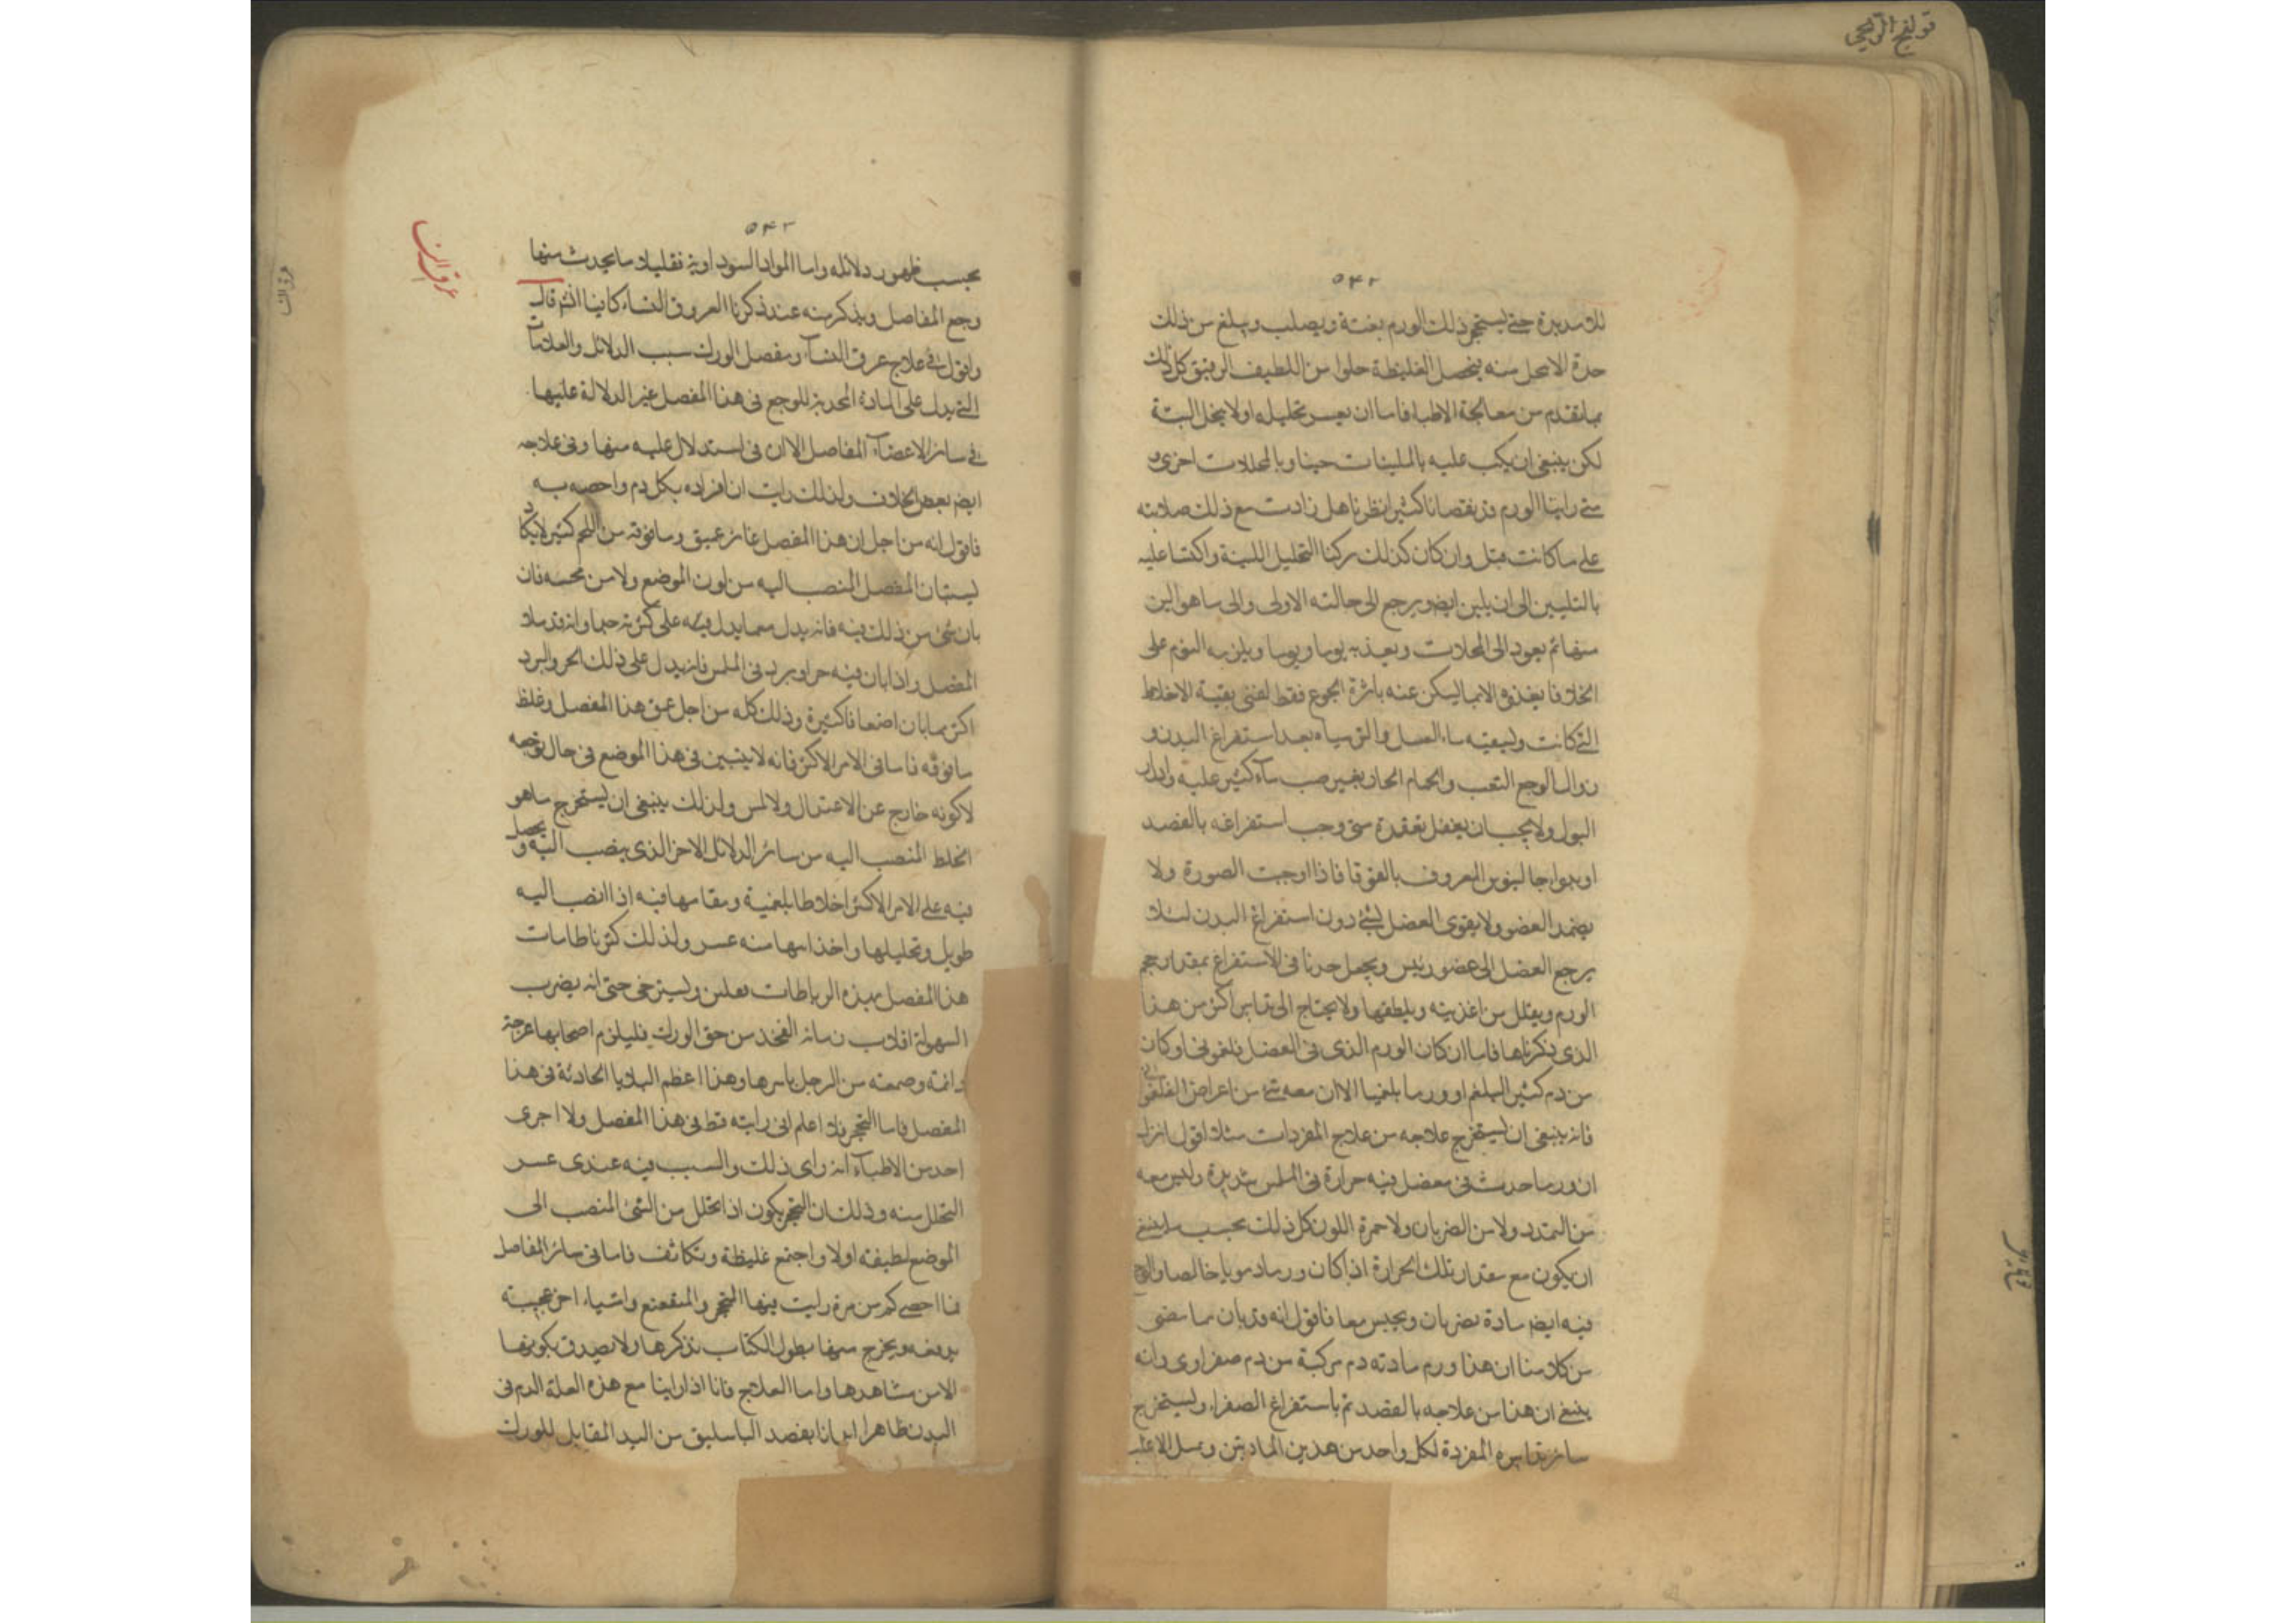 قولنج الريحى
٥٤٢
حتى يستحجر ذلك الورم بغتة ويصلب ويبلغ من ذلك
منه فيحصل الغليظة خلوا من اللطيف الرقيق كل ذلك
من معالجة الاطبا فاما ان يعسر تحليله او لا يتحلل البتة
لكن ينبغى ان يكب عليه بالملينات حينا وبالمحللات اخرى و
متى راينا الورم قد نقص نقصانا كثيرا نظرنا هل زادت مع ذلك صلابته
على ما كانت قبل وان كان كذلك تركنا التحليل البتة واكببنا عليه
بالتليين الى ان يلين ايضو يرجع الى حالته الاولى والى ما هو الين
منها ثم يعود الى المحللات يوما ويوما ويلزمه النوم على
الجوع فقط لتفنى بقية الاخلاط
التى كانت وليسقيه ماء العسل بعد استفراغ البدن و
زوال الوجع التعب والحمام الحار بغير صب ماء كثير عليه وادرار
البول ولا يجب ان يغفل متى وجب استفراغه بالفصد
المعروف فاذا اوجبت الصورة ولا
يضمد العضو ولا يقوى المفصل بشئ دون استفراغ البدن لئلا
يرجع الفضل الى عضو رئيس ويجعل حدنا فى الاستفراغ بمقدار حجم
الورم ويقلل من اغذيته ويلطفها ولا يحتاج الى تدابير اكثر من هذا
الذى ذكرناها فاما ان كان الورم الذى فى المفصل فلغمونى او كان
من دم كثير البلغم او ورما بلغميا الا ان معه شئ من اعراض الفلغمونى
فانه ينبغى ان يستخرج علاجه من علاج المفردات مثلا اقول انزل
ان ورما حدث فى مفصل فيه حرارة فى الملمس شديدة وليس معه
من التمدد ولا من الضربان ولا حمرة اللون كل ذلك بحسب ما ينبغى
ان يكون مع مقدار تلك الحرارة اذا كان ورما دمويا خالصا والوجع
فيه ايضم فاقول انه قد بان مما مضى
من كلامنا ان هذا ورم مادته دم مركبة من دم صفراوى وانه
ينبغى ان هذا من علاجه بالفصد ثم باستفراغ الصفراء ويستخرج
سائر تدابيره المفردة لكل واحد من هذين المادتين
٥٤٣
عرق النسا
بحسب ظهور دلائله واما المواد السوداوية فقليلا ما يحدث منها
وجع المفاصل ويذكر منه عند ذكرنا العروق النساء قال
واقول فى علاج عرق النسا ومفصل الورك سبب الدلائل والعلامات
التى يدل على المادة المحدثة للوجع فى هذا المفصل غير الدلالة عليها
فى سائر الاعضاء المفاصل الا ان فى استدلال عليه منها وفى علاجه
ايضم بعض الخلاف ولذلك رايت ان افراده بكلام واخصه به
فاقول انه من اجل ان هذا المفصل غائر عميق وما فوقه من اللحم كثير لا يكاد
يستبان المفصل المنصب اليه من لون الموضع ولا من مجسه فان
بان شئ من ذلك فيه فانه يدل مما يدل فيه على كثرته جدا وانه قد ملا
المفصل واذا بان فيه حر او برد فى الملمس فانه يدل على ذلك الحر والبرد
اكثر مما بان اضعافا كثيرة وذلك كله من اجل عمق هذا المفصل وغلظ
ما فوقه فاما فى الامر الاكثر فانه لا يتبين فى هذا الموضع فى حال توجعه
لا كونه خارج عن الاعتدال ولا لمس ولذلك ينبغى ان يستخرج ما هو
الخلط المنصب اليه من سائر الدلائل الاخر الذى ينصب اليه و يحصل
فيه على الامر الاكثر اخلاطا بلغمية ومقامها فيه اذا انصب اليه
طويل وتحليلها واخذامها منه عسر ولذلك كثر ما
هذا المفصل بهذه الرباطات ويسترخى حتى انه يضرب
السهولة انقلاب رمانة الفخذ من حق الورك فليلزم اصحابها عرجة
من الرجل باسرها وهذا اعظم البلايا الحادثة فى هذا
المفصل فاما التحجر فلا اعلم انى رايته قط فى هذا المفصل ولا اجرى
احد من الاطباء انه راى ذلك والسبب فيه عندى عسر
التحلل منه وذلك ان التحجر يكون اذا تحلل من الشئ المنصب الى
الموضع لطيفته اولا واجتمع غليظة وتكاثف فاما فى سائر المفاصل
فما احصى كم من مرة رايت فيها التحجر والمتقعع واشياء اخر عجيبة
ويخرج منها يطول الكتاب بذكرها ولا يصدق بكونها
الا من شاهدها واما العلاج فانا اذا راينا مع هذه العلة الدم فى
البدن ظاهرا بفصد الباسليق من اليد المقابل للورك